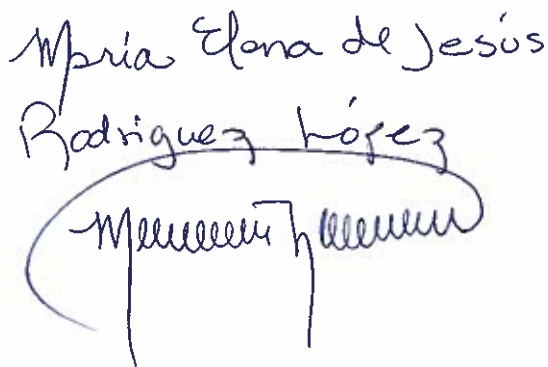 María Elena de Jesús
Rodriguez López